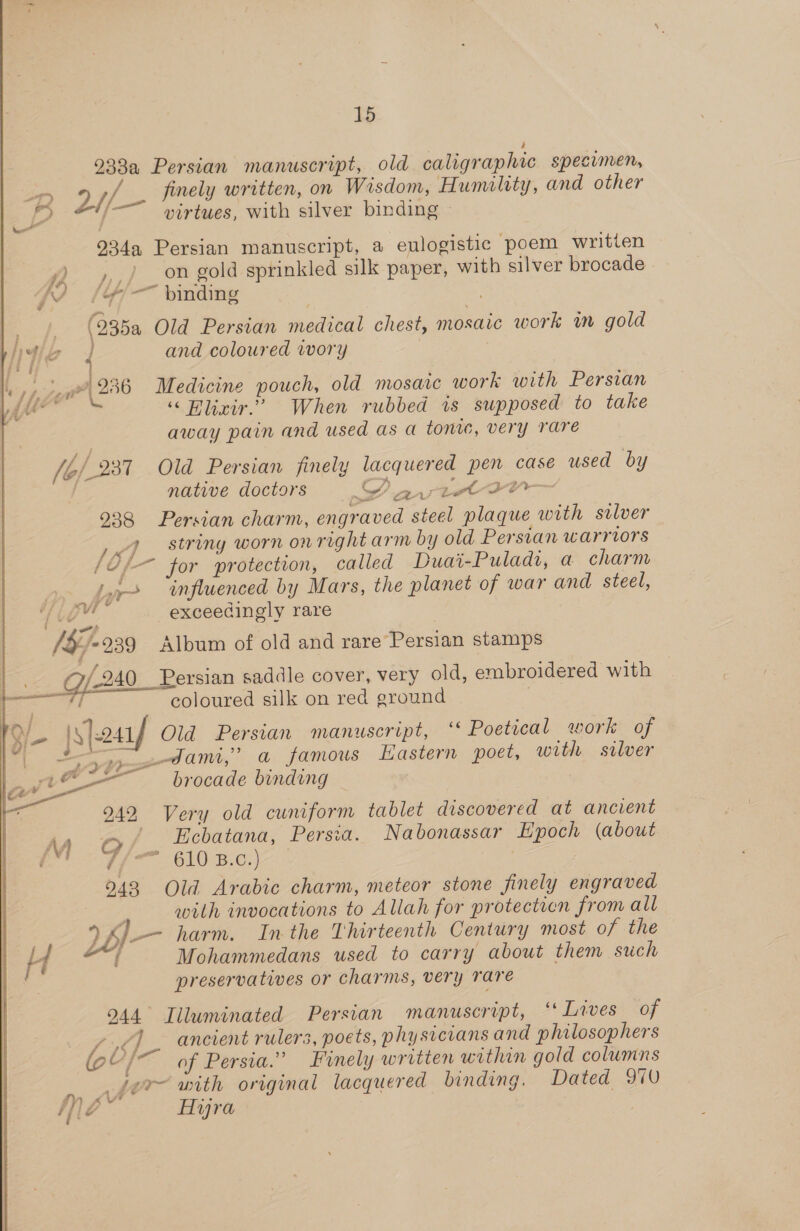 15
233a Persian manuscript, old caligraphic specimen,
21/- finely written, on Wisdom, Humility, and other
virtues, with silver binding
234a Persian manuscript, a eulogistic poem written
on gold sprinkled silk paper, with silver brocade
binding
(235a Old Persian medical chest, mosaic work in gold
and coloured ivory
236 Medicine pouch, old mosaic work with Persian
“Elixir.” When rubbed is supposed to take
away pain and used as a tonic, very rare
16/- 237 Old Persian finely lacquered pen case used by
native doctors
238 Persian charm, engraved steel plaque with silver
string worn on right arm by old Persian warriors
for protection, called Duai-Puladi, a charm
influenced by Mars, the planet of war and steel,
exceedingly rare
239 Album of old and rare Persian stamps
9/- 240 Persian saddle cover, very old, embroidered with
coloured silk on red ground
241 Old Persian manuscript, “Poetical work of
Jami,” a famous Eastern poet, with silver
brocade binding
242 Very old cuniform tablet discovered at ancient
Ecbatana, Persia. Nabonassar Epoch (about
610 B.C.)
243 Old Arabic charm, meteor stone finely engraved
with invocations to Allah for protection from all
harm. In the Thirteenth Century most of the
H Mohammedans used to carry about them such
preservatives or charms, very rare
244 Illuminated Persian manuscript, “Lives of
ancient rulers, poets, physicians and philosophers
of Persia.” Finely written within gold columns
with original lacquered binding. Dated 970
Hijra